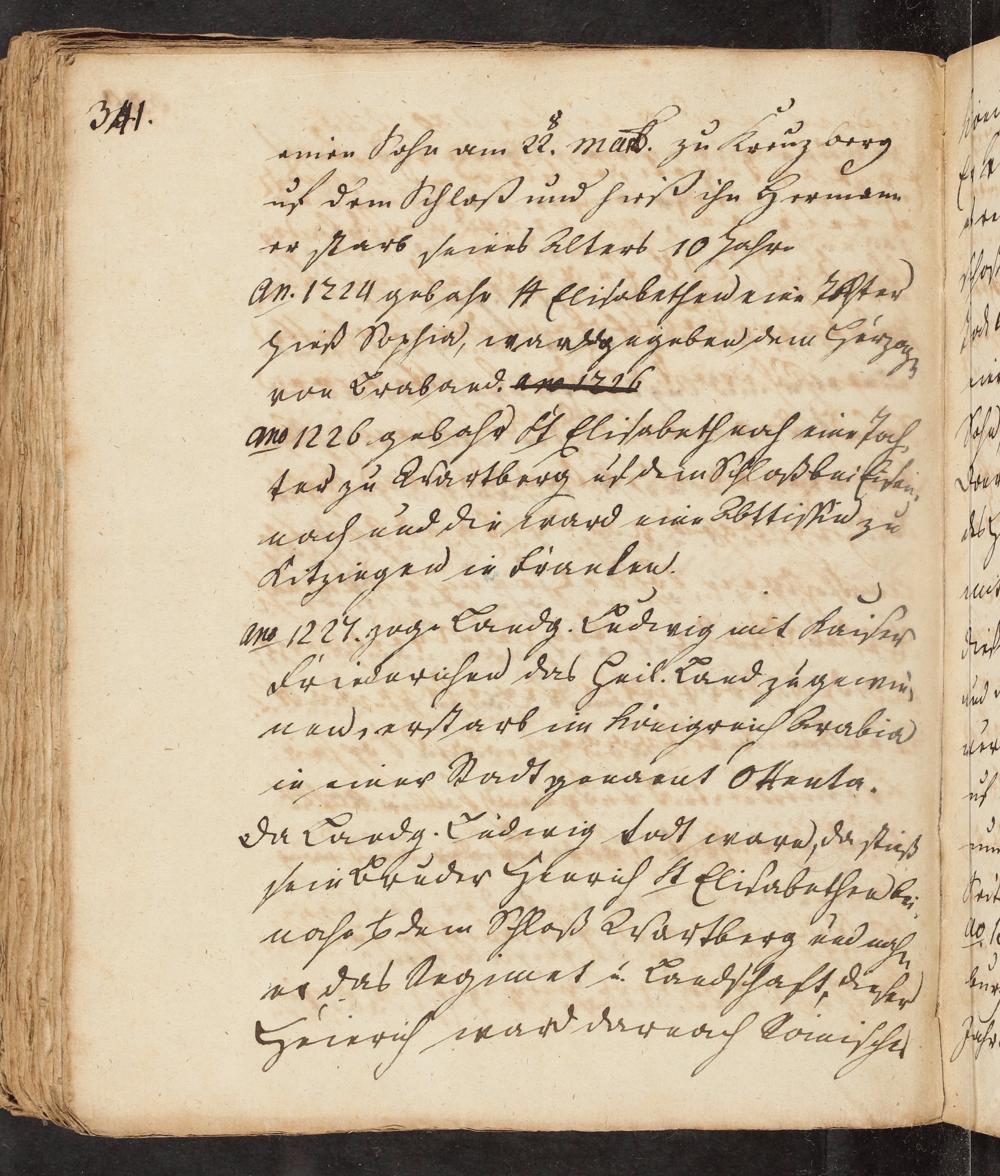 341.
einen Sohn am 28. Mart. zu Kreuzberg
uf dem Schloß und hieß ihn Herman
er starb seines Alters 10 Jahr.
An. 1224 gebahr St Elisabethen eine Tochter
hieß Sophia, ward gegeben dem Herzoge
von Braband. ano 1226
ano 1226 gebahr St Elisabeth noch eine Toch
ter zu Wartberg uf dem Schloß bei Eisen,
nach und die ward eine Abttissin zu
Kitzingen in Franken.
ano 1227. zoge Landg. Ludwig mit Kaiser
Friederichen das Heil. Land zu gewin,
nen, er starb im Königreich Arabia
in einer Stadt genannt Ottenta.
Da Landg. Ludwig todt ware, da stieß
sein Bruder Heinrich St Elisabethen bei,
nahe dem Schloß Wartberg und nahm
er das Regiment u. Landschaft, dieser
Heinrich ward darnach Römischer